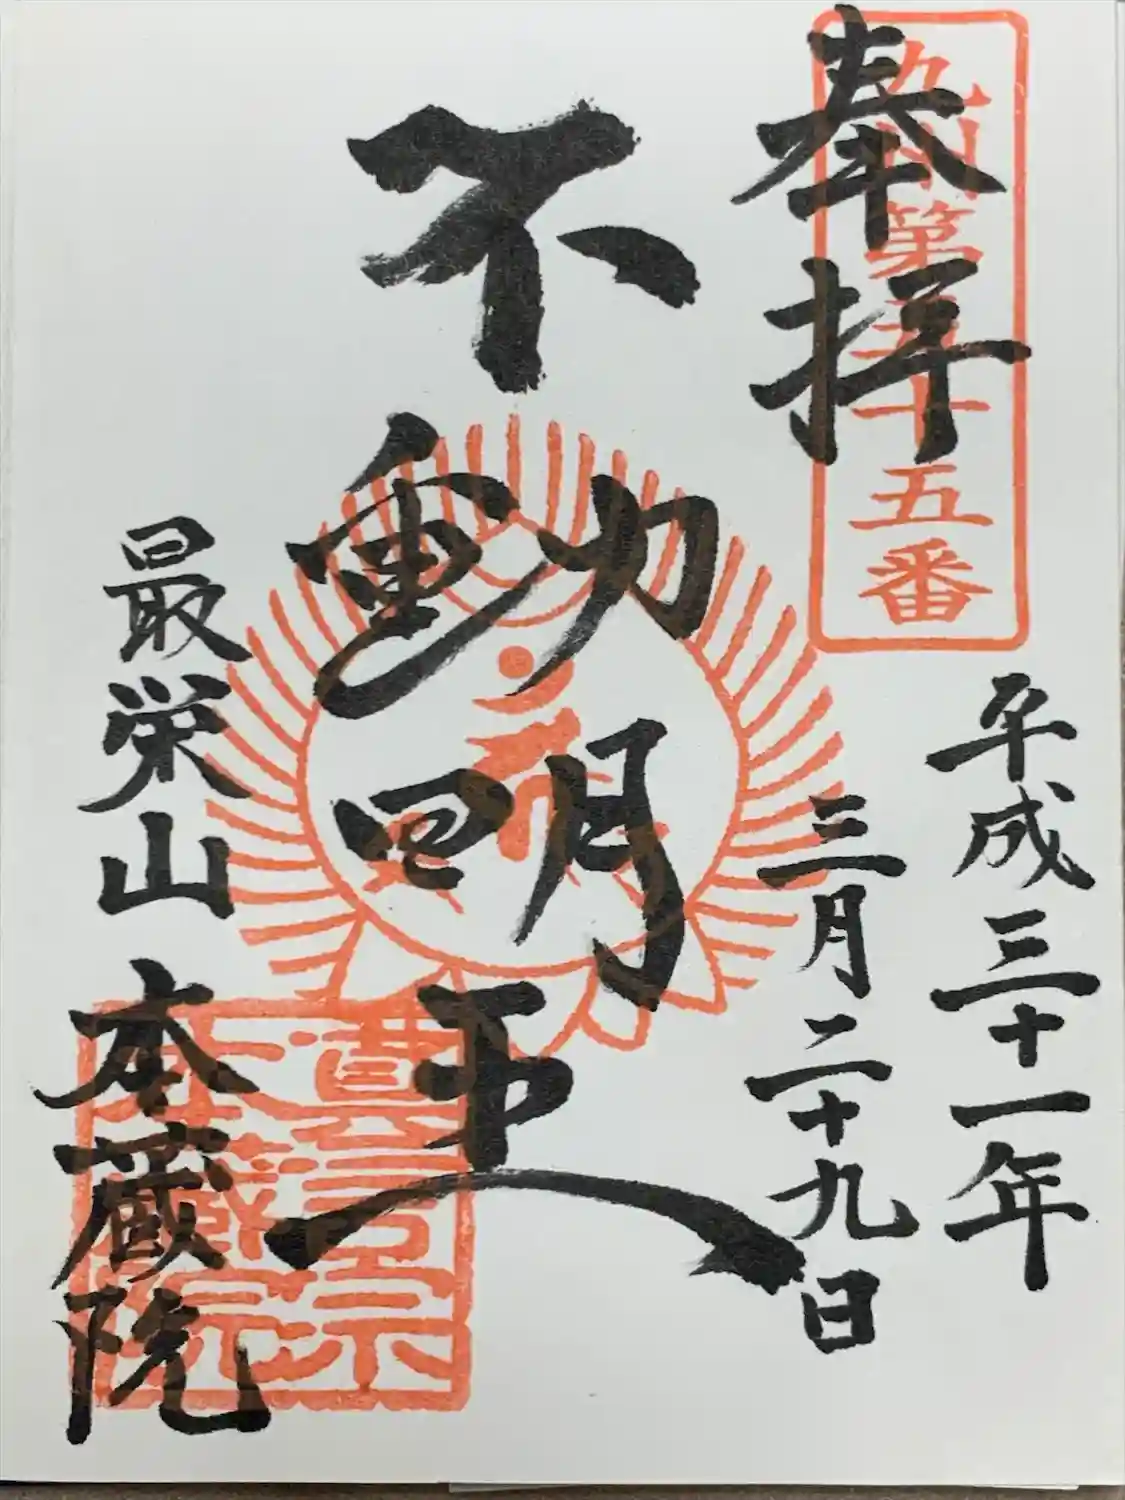 奉拝
九州第三十五番
平成三十一年
三月二十九日
不動明王
最栄山
本蔵院
真言宗
本蔵院